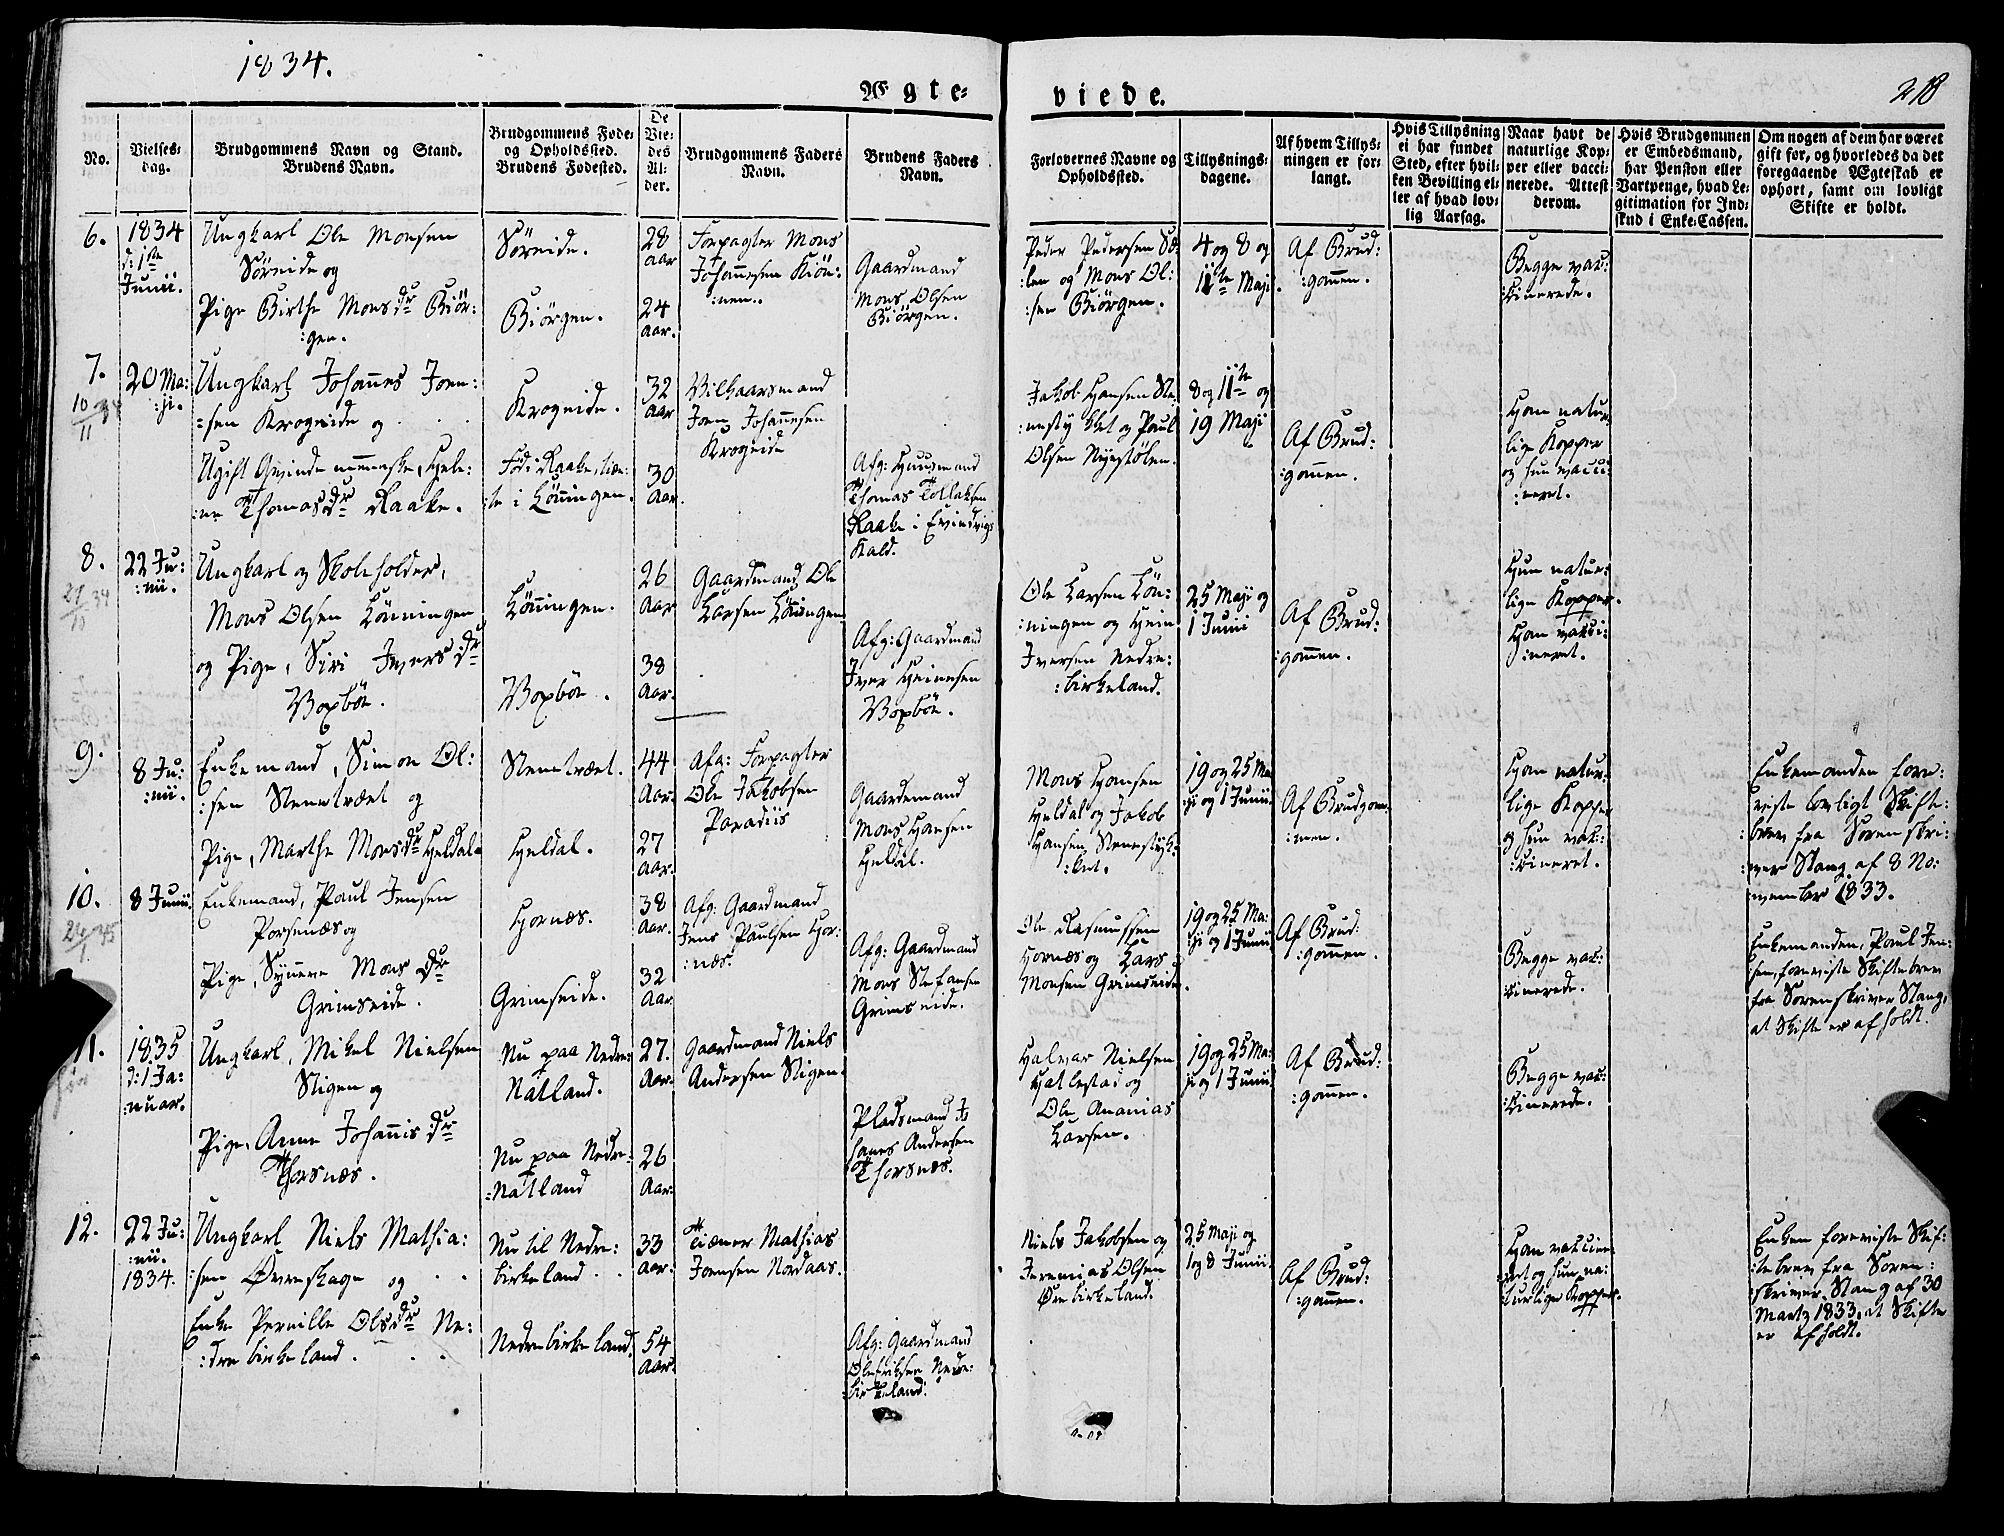 1834.
Ægte-
viede.
218
No.
Vielses-
dag.
Brudgommens Navn og Stand.
Brudens Navn.
Brudgommens Føde-
og Opholdssted.
Brudens Fødested.
De
Vie-
des
Al-
der.
Brudgommens Faders
Navn.
Brudens Faders
Navn.
Forlovernes Navne og
Opholdssted.
Tillysnings-
dagene.
Af hvem Tillys-
ningen er for-
langt.
Hvis Tillysning
ei har fundet
Sted, efter hvil-
ken Bevilling el-
ler af hvad lov-
lig Aarsag.
Naar havt de
naturlige Kop-
per eller vacci-
nerede. Attest
derom.
Hvis Brudgommen
er Embedsmand,
har Pension eller
Vartpenge, hvad Le-
gitimation for Ind-
skud i Enke-Cassen.
Om nogen af dem har været
gift før, og hvorledes da det
foregaaende Ægteskab er
ophørt, samt om lovligt
Skifte er holdt.
6.
1834
d: 1ste
Junii.
Ungkarl Ole Monsen
Söreide og
Pige Birthe Monsdr Biör:
:gen.
Söreide.
Biörgen.
28
aar
24
aar.
Forpagter Mons
Johannesen Kiön:
:nen.
Gaardmand
Mons Olsen
Biörgen.
Peder Pedersen Sæ:
:len og Mons Ol:
:sen Biörgen.
4 og 8 og
11te Maji.
Af Brud:
:gommen.
Begge vac:
:cinerede.
7.
10/11 34
20 Ma:
:ji.
Ungkarl Johannes Joen:
:sen Krogeide og
Ugift Qvinde menneske, Hele:
:ne Thomasdr Raake.
Krogeide.
Föd i Raake, tiæ:
:te i Lönningen.
32
aar
30
aar.
Vilkaarsmand
Joen Johannesen
Krogeide
Afg: Huusmand
Thomas Tollaksen
Raake i Evindvigs
Kald.
Jakob Hansen Ste:
:nesty ket og Paul
Olsen Nyestölen.
8 og 11te og
19 Maji
Af Brud:
:gommen.
Han natur:
lige Kopper
og hun vacci:
:neret.
8.
22 Ju:
:nii.
Ungkarl og Skoleholder,
Mons Olsen Lönningen
og Pige, Siri Iversdr
Voxböe.
Lönningen.
Voxböe.
26
Aar
38
Aar.
Gaardmand Ole
Larsen Lönningen
Afg: Gaardmand
Iver Heinesen
Voxböe.
Ole Larsen Lön:
:ningen og Hein
Iversen Nedre:
:birkeland.
25 Maji og
1 Junii
Af Brud:
:gommen.
Hun natur:
lige Kopper.
Han vacci:
:neret.
9.
8 Ju:
:nii.
Enkemand, Simon Ol:
:sen Stenetræet og
Pige, Marthe Monsdr Heldal
Stenetræet.
Heldal.
44
Aar.
27
Aar.
Afg: Forpagter
Ole Jakobsen
Paradiis
Gaardemand
Mons Hansen
Heldal.
Mons Hansen
Heldal og Jakob
Hansen Stenestyk:
:ket.
19 og 25 Ma
:ji og 1 Junii.
Af Brudgom:
:men.
Han natur:
lige Kopper
og hun vac:
:cineret.
Enkemanden fore:
:viste lovligt Skifte:
:brev fra Sorenskri:
:ver Stang af 8 No:
:vember 1833.
10.
8 Junii.
Enkemand, Paul Jensen
Porsenæs og
Pige, Synneve Mons dr
Grimseide.
Hornæs.
Grimseide.
38
Aar.
32
Aar.
Afg: Gaardmand
Jens Paulsen Hor:
:næs.
Afg: Gaardmand
Mons Stefansen
Grimseide.
Ole Rasmussen
Hornæs og Lars
Monsen Grimseide.
19 og 25 Ma:
:ji og 1 Junii
Af Brud:
:gommen.
Begge vac:
:cinerede.
Enkemanden, Paul Jen:
:sen, foreviste Skiftebrev
fra Sorenskriver Stang,
at Skifte er afholdt.
11.
1835
d: 1 Ja:
:nuar.
Ungkarl, Mikel Nielsen
Stigen og
Pige, Anne Johannis dr
Thorsnæs.
Nu paa Nedre:
Natland.
Nu paa Nedre:
:Natland
27.
Aar.
26
Aar.
Gaardmand Niels
Andersen Stigen.
Pladsmand Jo
hanes Andersen
Thorsnæs.
Halvar Nielsen
Hatlestad og
Ole Ananias
Larsen.
19 og 25 Ma:
ji og 1 Junii
Af Brud:
:gommen.
Begge vac:
:cinerede.
12.
22 Ju:
:nii.
1834.
Ungkarl Niels Mathia:
:sen Övreskage og
Enke Pernille Olsdr Ne:
:dre birkeland.
Nu til Nedre:
birkeland
Nedrebirkeland.
33
Aar.
54
Aar.
Tiæner Mathias
Joensen Nordaas.
Afg: Gaardmand
Ole Eriksen Nedre:
birkeland.
Niels Jakobsen og
Jeremias Olsen
Övrebirkeland.
25 Maji og
1 og 8 Junii.
Af Brud:
:gommen.
Han vaccine:
:ret og hun na:
:turlige Kopper.
Enken foreviste Skif:
:tebrev fra Soren:
:skriver Stang af 30
Martz 1833, at Skifte
er afholdt.